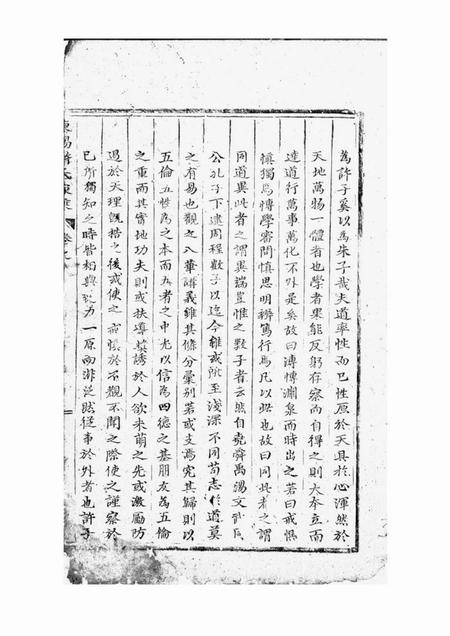 為許子奚以為朱子哉夫道率性而已性原於天具於心渾然於
天地萬物一體者也學者果能反躬存察而自得之則大本立而
達道行萬事萬化不外是矣故曰溥博淵泉而時出之若曰戒懼
慎獨為博學審問慎思明辨篤行為凡以此也故曰同此者之謂
同道異此者之謂異端豈惟之數子者云然自堯舜禹湯文武周
公孔子下逮周程數子以迄今雖或所至淺深不同苟志於道莫
之有易也觀之八華講義雖其條分彙別若或支焉究其歸則以
五倫五性為之本而五者之中尤以信為四德之基朋友為五倫
之重而其實地功夫則或扶導奬誘於人欲未萌之先或激勵防
遏於天理既牿之後或使之戒懼於不覩不聞之際使之謹察於
已所獨知之時皆相與 一原而非泛然從事於外者也許子
東陽許氏